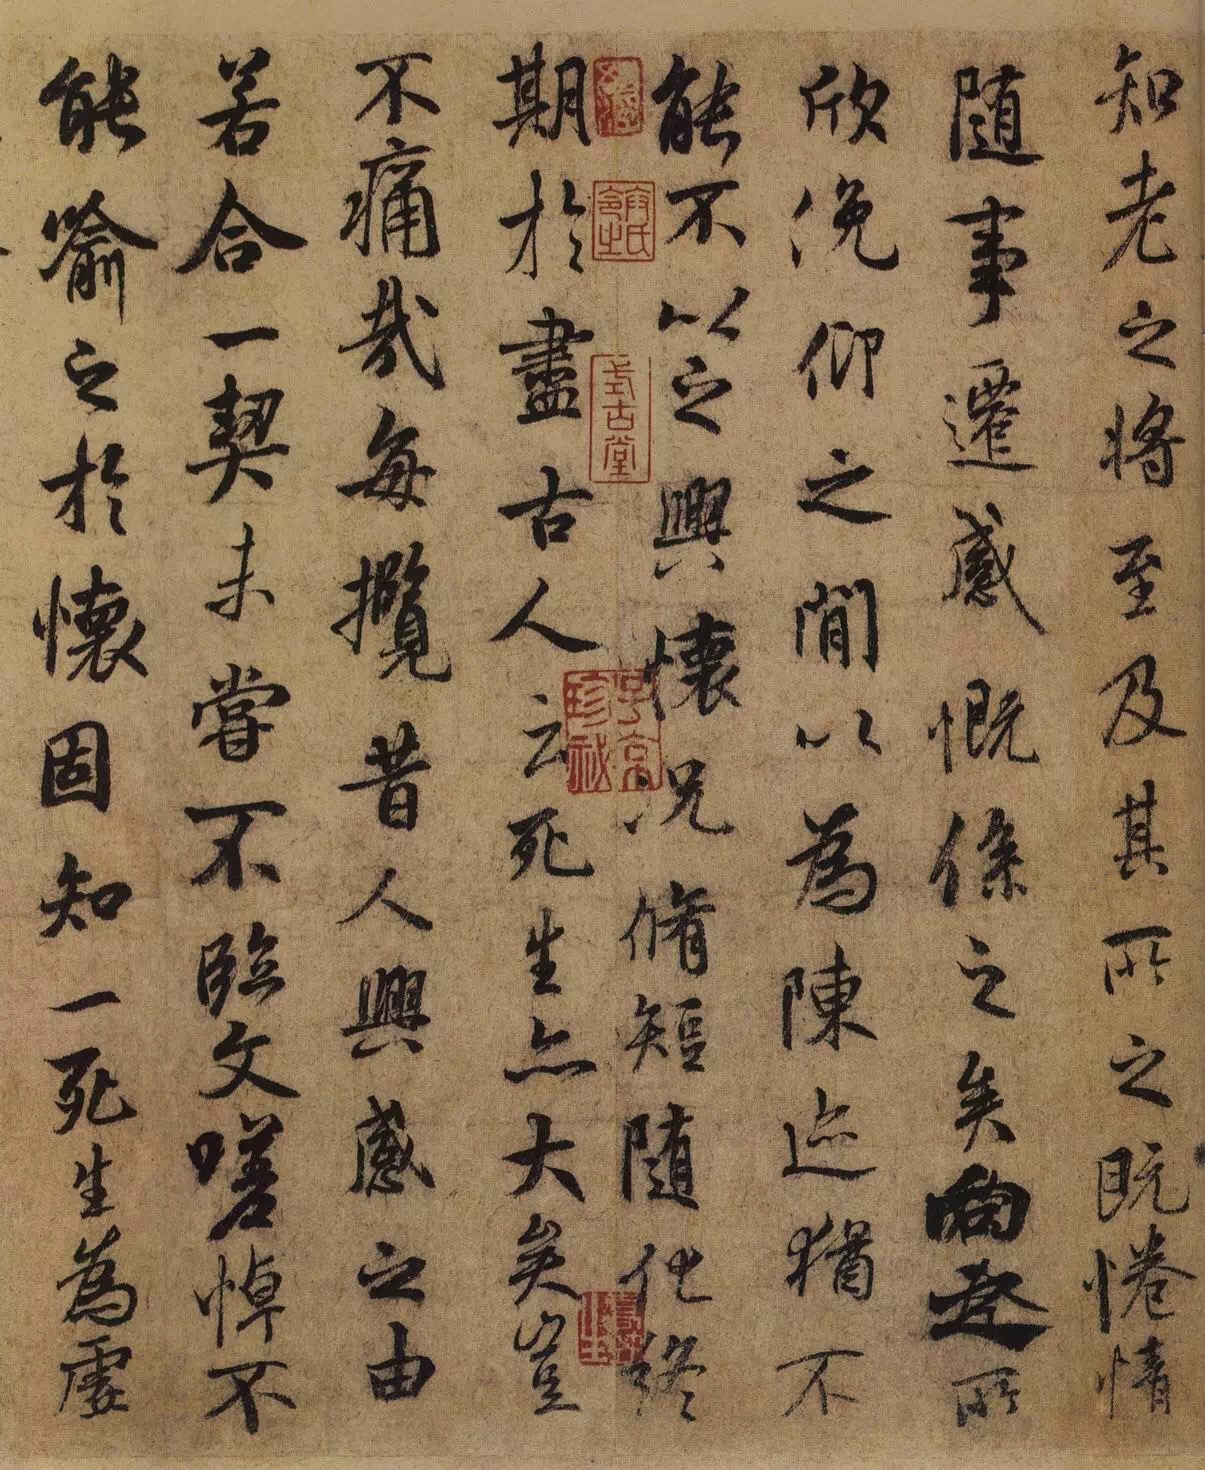 知老之將至及其所之既惓情
隨事遷感慨係之矣向之所
欣俛仰之閒以為陳迹猶不
能不以之興懷況脩短隨化終
期於盡古人云死生亦大矣豈
不痛哉每攬昔人興感之由
若合一契未嘗不臨文嗟悼不
能喻之於懷固知一死生為虛
式古堂
珍祕